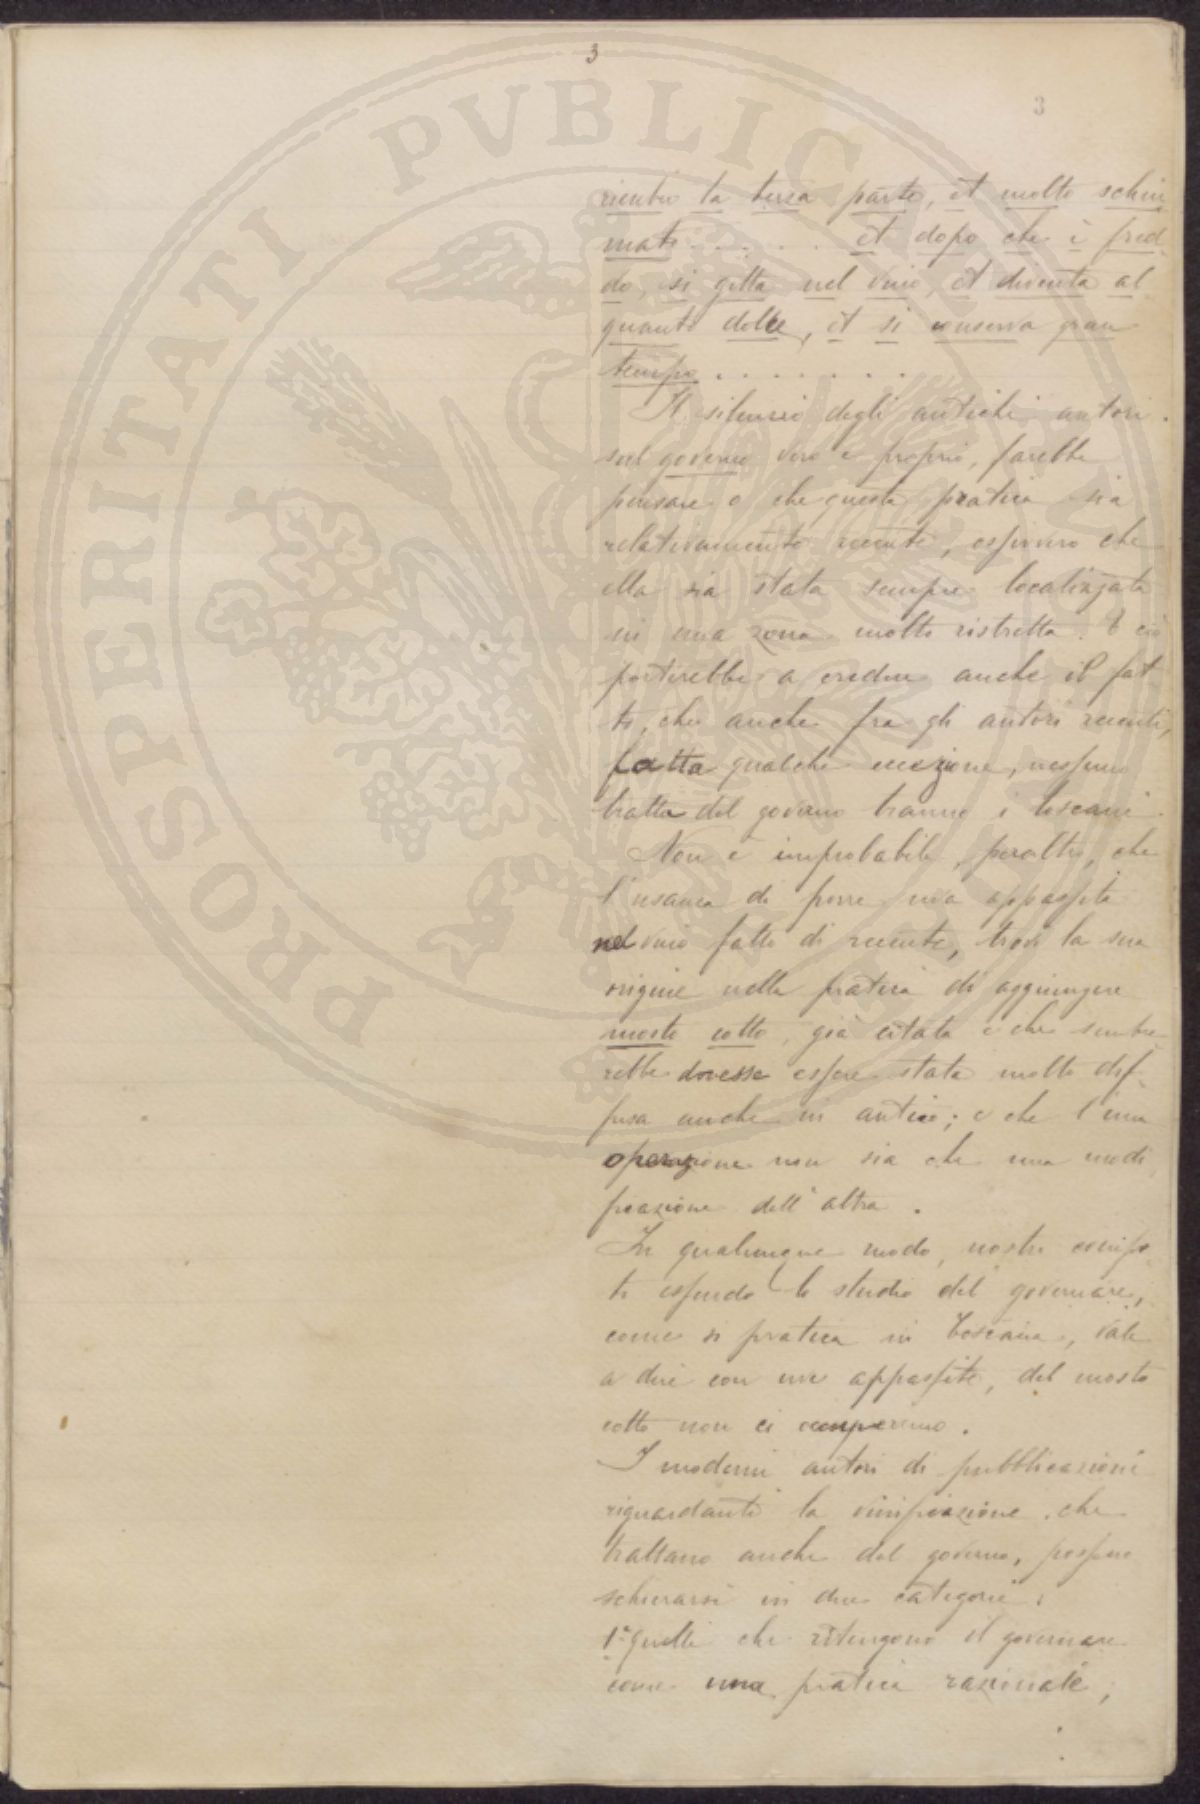 3
3
rientro la terza parte, et molto schiu
mato . . . . . . et dopo che è fred-
do, si getta nel vino, et diventa al
quanto dolce, et si conserva gran
tempo . . . . . . .
Il silenzio degli antichi autori
sul governo vero e proprio, farebbe
pensare o che questa pratica sia
relativamente recente, oppure che
ella sia stata sempre localizzata
in una zona molto ristretta. E ciò
porterebbe a credere anche il fat
to, che anche fra gli autori recenti,
fatta qualche eccezione, nessuno
tratta del governo tranne i toscani.
Non è improbabile, peraltro, che
l'usanza di porre uva appassita
nel vino fatto di recente, trovi la sua
origine nella pratica di aggiungere
mosto cotto, già citata e che sembre
rebbe dovesse essere stata molto dif-
fusa anche in antico; e che l'una
operazione non sia che una modi
ficazione dell'altra.
In qualunque modo, nostro compi
to essendo lo studio del governare,
come si pratica in Toscana, vale
a dire con uve appassite, del mosto
cotto non ci occuperemo.
I moderni autori di pubblicazioni
riguardanti la vinificazione che
trattano anche del governo, possono
schierarsi in due categorie:
1° quelli che ritengono il governare
come una pratica razionale;
PROSPERITATI PVBLICAE